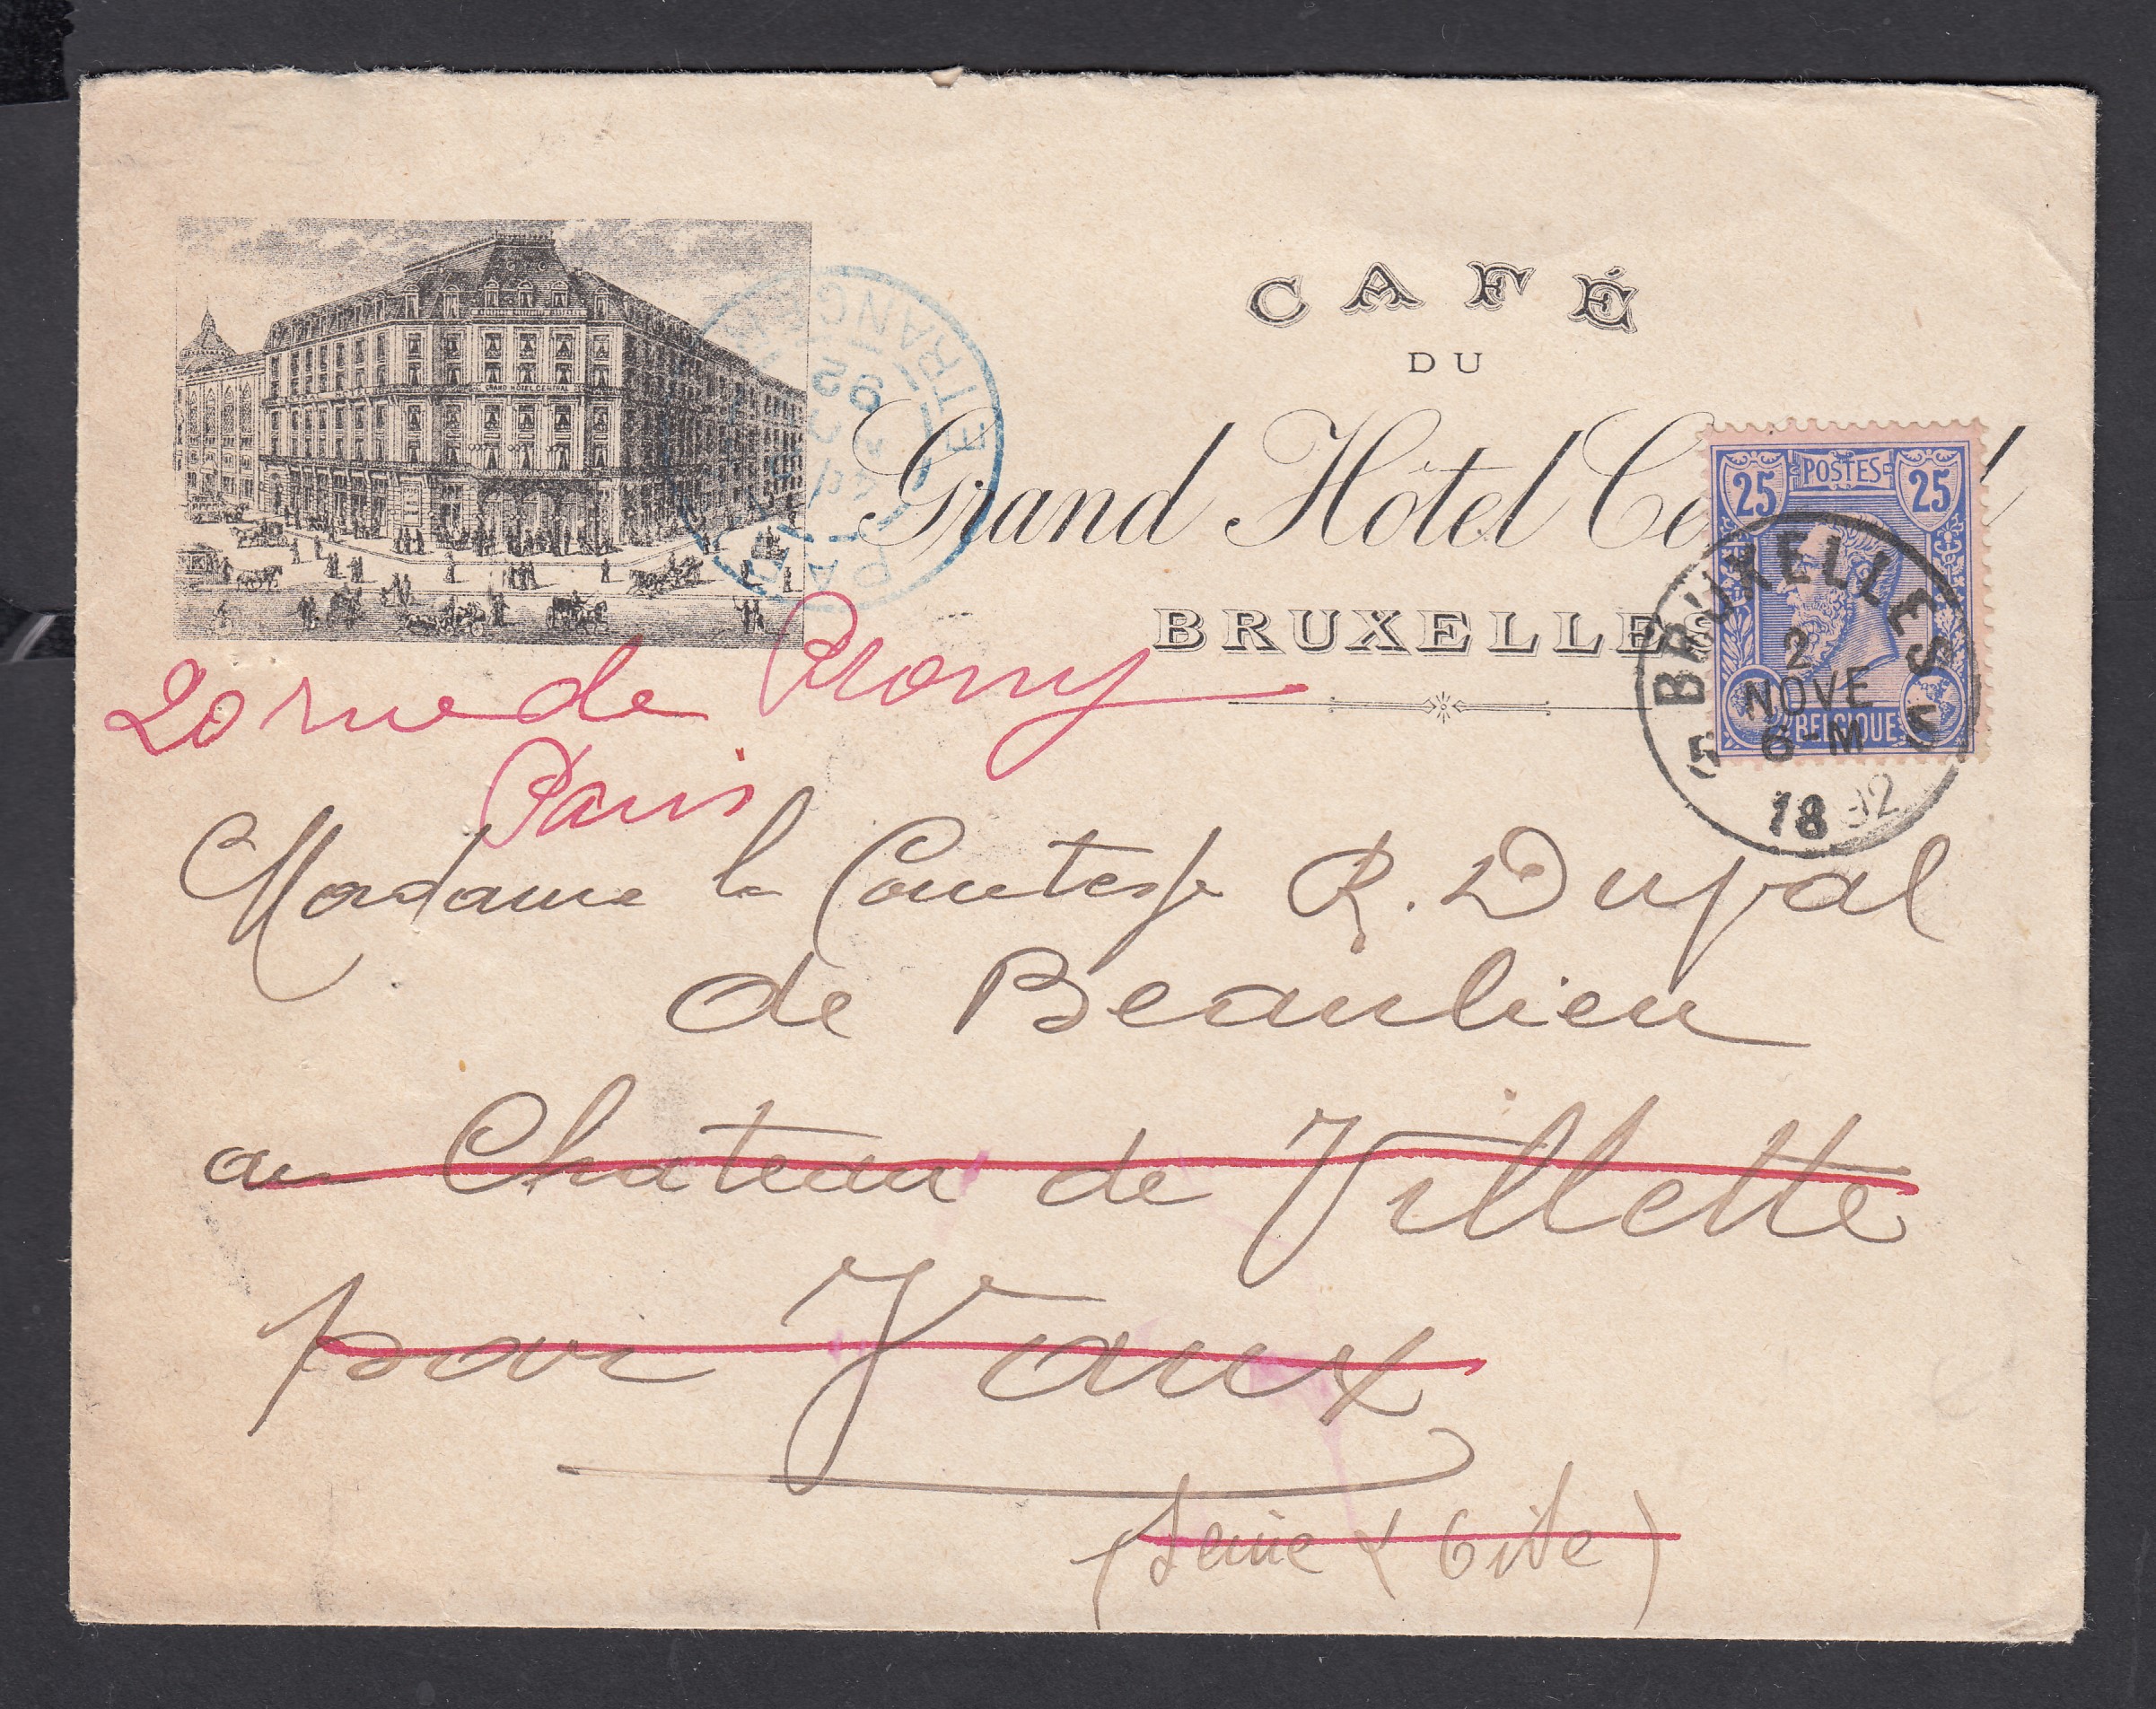 CAFÉ
DU
Grand Hôtel Ce l
BRUXELLES
GRAND HOTEL CENTRAL
PARIS ETRANGER
92
25 POSTES 25
BELGIQUE
BRUXELLES
2
NOVE
6-M
5 5
1892
20 rue de Prony
Paris
Madame la Comtesse R. Duval
de Beaulieu
au Chateau de Villette
par Vaux
(Seine & Oise)